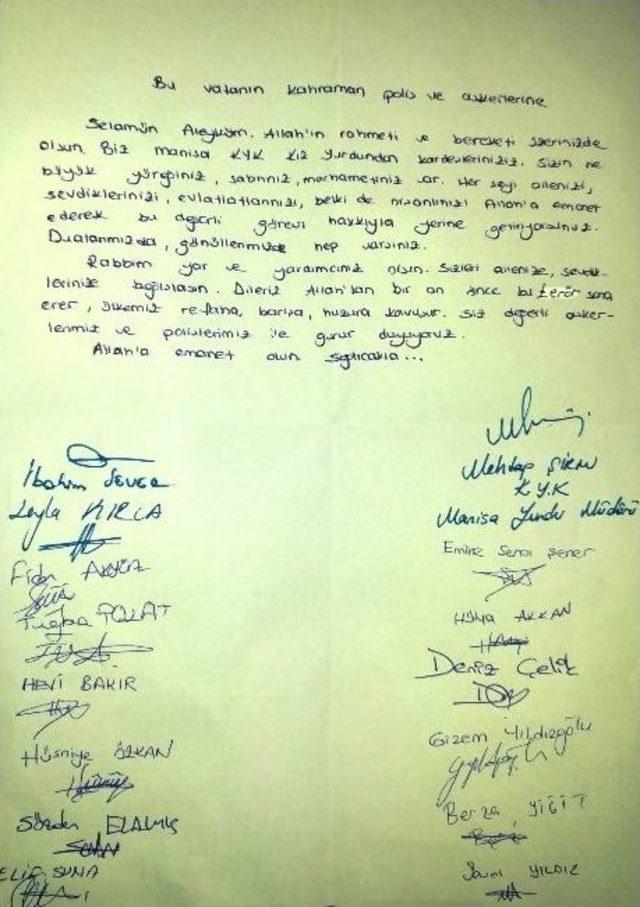 Bu vatanın kahraman polis ve askerlerine
Selamün Aleyküm. Allah'ın rahmeti ve bereketi üzerinizde
olsun. Biz manisa KYK Kız Yurdundan kardeşlerinizız. Sizin ne
büyük yüreğiniz, sabrınız, merhametiniz var. Her şeyi ailenizi,
sevdiklerinizi, evlatlarınızı, belki de nişanlınızı Allah'a emanet
ederek bu değerli görevi hakkıyla yerine getiriyorsunuz.
Dualarımızda, gönüllerimizde hep varsınız.
Rabbim yar ve yardımcınız olsun. Sizleri ailenize, sevdik-
lerinize bağışlasın. Dileriz Allah'tan bir an önce bu terör sona
erer, ülkemiz refaha, barışa, huzura kavuşur. Siz değerli asker-
lerimiz ve polislerimiz ile gurur duyuyoruz.
Allah'a emanet olun sağlıcakla...
Mehtap
KYK
Manisa Yurdu Müdürü
Leyla KIRCA
Emine Şener
Tuğba POLAT
Hülya AKKAN
Deniz Çelik
HEVİ BAKIR
Gizem Yıldızgölü
Hüsniye ÖZKAN
Berza YİĞİT
ELİF SUNA
YILDIZ